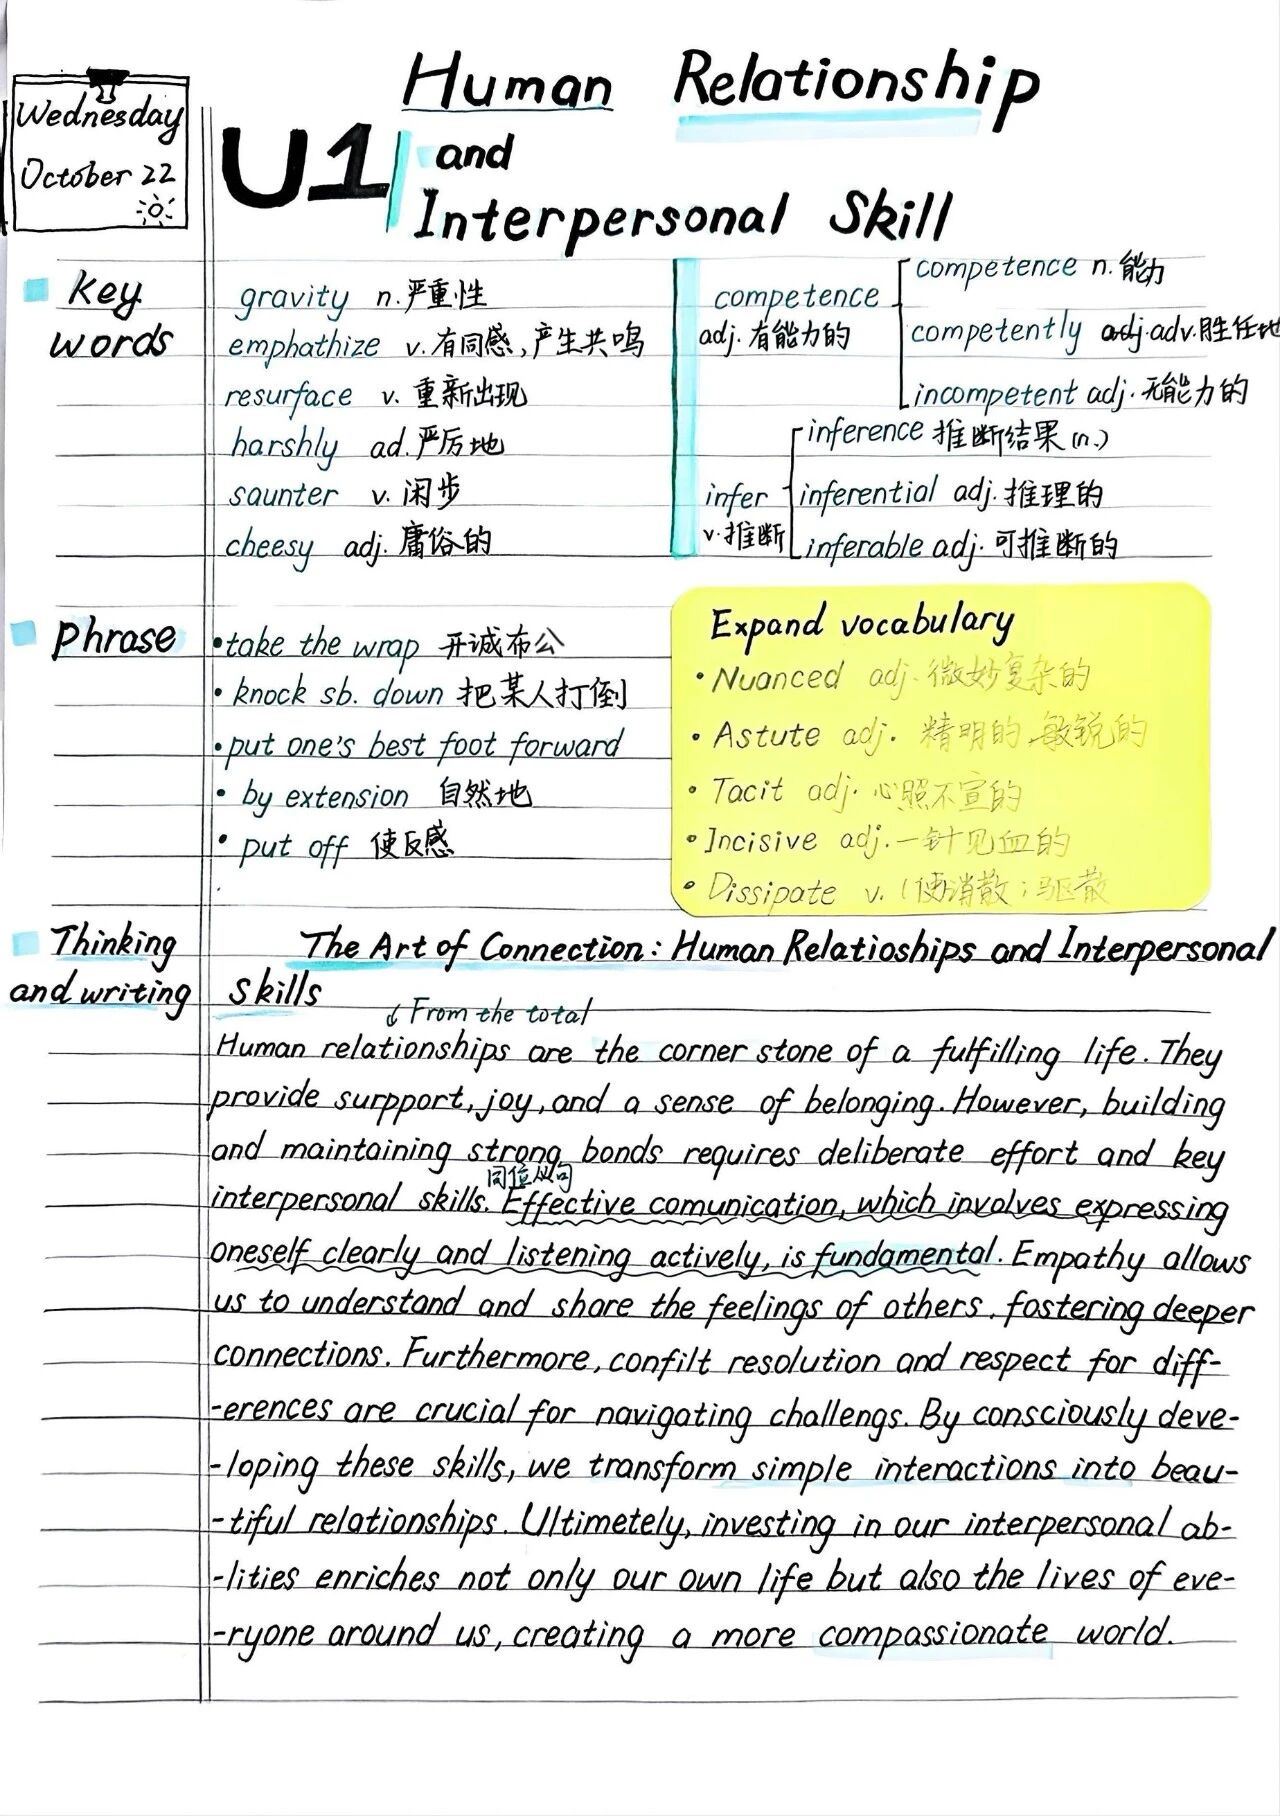 Wednesday
October 22
U1
Human Relationship
and
Interpersonal Skill
Key
words
gravity n.严重性
emphathize v.有同感,产生共鸣
resurface v.重新出现
harshly ad.严厉地
saunter v.闲步
cheesy adj.庸俗的
competence
adj.有能力的
competence n.能力
competently adj.adv.胜任地
incompetent adj.无能力的
infer
v.推断
inference 推断结果(n.)
inferential adj.推理的
inferable adj.可推断的
phrase
•take the wrap 开诚布公
•knock sb. down 把某人打倒
•put one's best foot forward
•by extension 自然地
•put off 使反感
Expand vocabulary
•Nuanced adj.微妙复杂的
•Astute adj.精明的 敏锐的
•Tacit adj.心照不宣的
•Incisive adj.一针见血的
•Dissipate v.(使)消散;驱散
Thinking
and writing
The Art of Connection: Human Relatioships and Interpersonal
skills
↓From the total
Human relationships are the corner stone of a fulfilling life. They
provide surpport, joy, and a sense of belonging. However, building
and maintaining strong bonds requires deliberate effort and key
同位从句
interpersonal skills. Effective comunication, which involves expressing
oneself clearly and listening actively, is fundamental. Empathy allows
us to understand and share the feelings of others, fostering deeper
connections. Furthermore, confilt resolution and respect for diff-
-erences are crucial for navigating challengs. By consciously deve-
-loping these skills, we transform simple interactions into beau-
-tiful relationships. Ultimetely, investing in our interpersonal ab-
-lities enriches not only our own life but also the lives of eve-
-ryone around us, creating a more compassionate world.